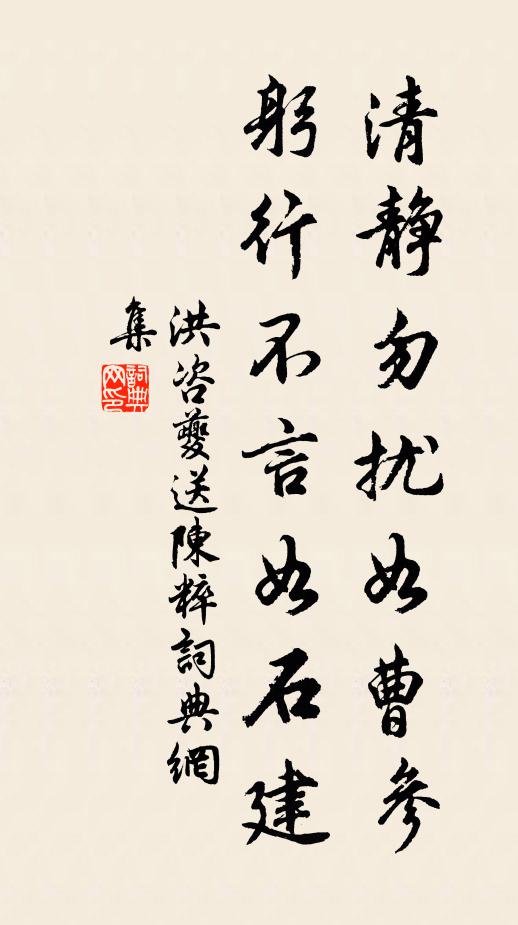 清静勿扰如曹參
躬行不言如石建
洪咨夔送陳粹詞典網
集
詞典
网印